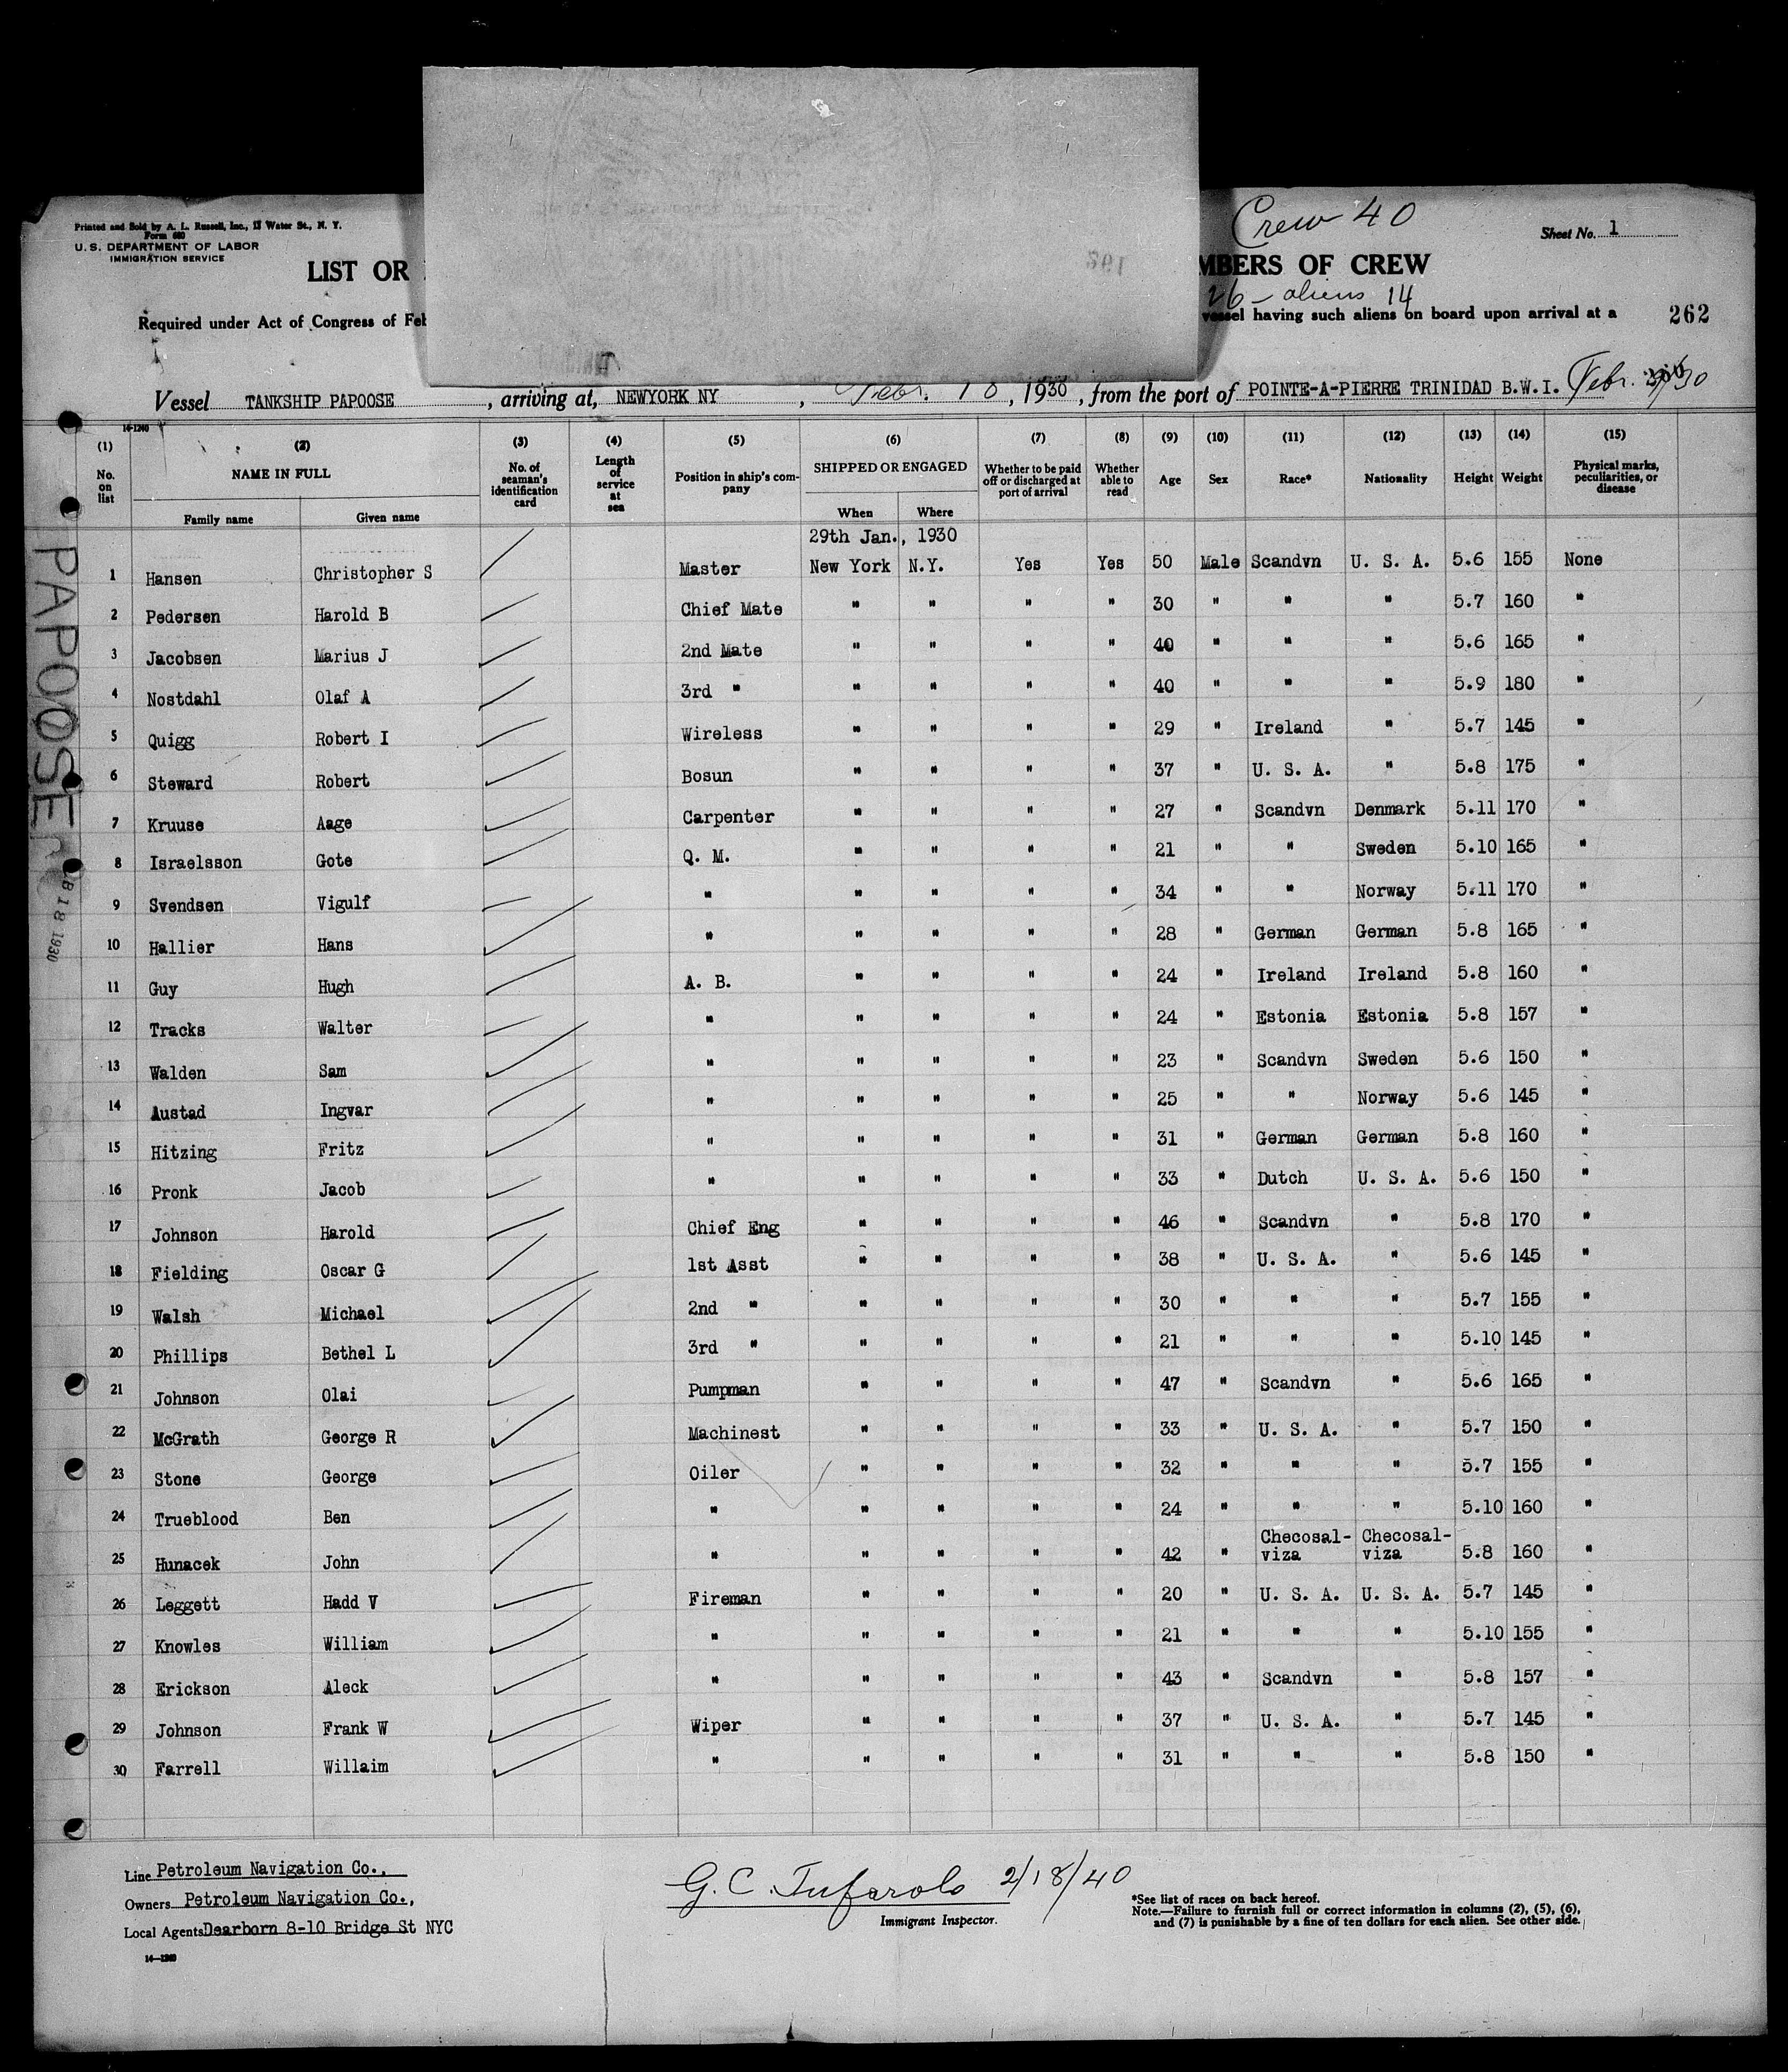 Crew 40
Printed and Sold by A. L. Russell, Inc., 13 Water St., N. Y.
Form 680
U. S. DEPARTMENT OF LABOR
IMMIGRATION SERVICE
Sheet No. 1
LIST OR MBERS OF CREW
26 - aliens 14
Required under Act of Congress of Feb vessel having such aliens on board upon arrival at a 262
Vessel TANKSHIP PAPOOSE, arriving at, NEWYORK NY, Febr. 18, 1930, from the port of POINTE-A-PIERRE TRINIDAD B.W.I. Febr.
14-1240
(1) (2) (3) (4) (5) (6) (7) (8) (9) (10) (11) (12) (13) (14) (15)
No. on list NAME IN FULL No. of seaman's identification card Length of service at sea Position in ship's company SHIPPED OR ENGAGED Whether to be paid off or discharged at port of arrival Whether able to read Age Sex Race* Nationality Height Weight Physical marks, peculiarities, or disease
Family name Given name When Where
29th Jan., 1930
1 Hansen Christopher S Master New York N.Y. Yes Yes 50 Male Scandvn U. S. A. 5.6 155 None
2 Pedersen Harold B Chief Mate " " " " 30 " " " 5.7 160 "
3 Jacobsen Marius J 2nd Mate " " " " 40 " " " 5.6 165 "
4 Nostdahl Olaf A 3rd " " " " " 40 " " " 5.9 180 "
5 Quigg Robert I Wireless " " " " 29 " Ireland " 5.7 145 "
6 Steward Robert Bosun " " " " 37 " U. S. A. " 5.8 175 "
7 Kruuse Aage Carpenter " " " " 27 " Scandvn Denmark 5.11 170 "
8 Israelsson Gote Q. M. " " " " 21 " " Sweden 5.10 165 "
9 Svendsen Vigulf " " " " " 34 " " Norway 5.11 170 "
10 Hallier Hans " " " " " 28 " German German 5.8 165 "
11 Guy Hugh A. B. " " " " 24 " Ireland Ireland 5.8 160 "
12 Tracks Walter " " " " " 24 " Estonia Estonia 5.8 157 "
13 Walden Sam " " " " " 23 " Scandvn Sweden 5.6 150 "
14 Austad Ingvar " " " " " 25 " " Norway 5.6 145 "
15 Hitzing Fritz " " " " " 31 " German German 5.8 160 "
16 Pronk Jacob " " " " " 33 " Dutch U. S. A. 5.6 150 "
17 Johnson Harold Chief Eng " " " " 46 " Scandvn " 5.8 170 "
18 Fielding Oscar G 1st Asst " " " " 38 " U. S. A. " 5.6 145 "
19 Walsh Michael 2nd " " " " " 30 " " " 5.7 155 "
20 Phillips Bethel L 3rd " " " " " 21 " " " 5.10 145 "
21 Johnson Olai Pumpman " " " " 47 " Scandvn " 5.6 165 "
22 McGrath George R Machinest " " " " 33 " U. S. A. " 5.7 150 "
23 Stone George Oiler " " " " 32 " " " 5.7 155 "
24 Trueblood Ben " " " " " 24 " " " 5.10 160 "
25 Hunacek John " " " " " 42 " Checosal-viza Checosal-viza 5.8 160 "
26 Leggett Hadd V Fireman " " " " 20 " U. S. A. U. S. A. 5.7 145 "
27 Knowles William " " " " " 21 " " " 5.10 155 "
28 Erickson Aleck " " " " " 43 " Scandvn " 5.8 157 "
29 Johnson Frank W Wiper " " " " 37 " U. S. A. " 5.7 145 "
30 Farrell Willaim " " " " " 31 " " " 5.8 150 "
PAPOOSE
B 18 1930
Line Petroleum Navigation Co.,
Owners Petroleum Navigation Co.,
Local Agents Dearborn 8-10 Bridge St NYC
14-1240
G. C. Tufarolo 2/18/40
Immigrant Inspector.
*See list of races on back hereof.
Note.—Failure to furnish full or correct information in columns (2), (5), (6),
and (7) is punishable by a fine of ten dollars for each alien. See other side.